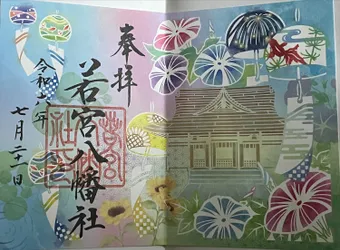 奉拝
若宮八幡社
令和六年
七月二十一日